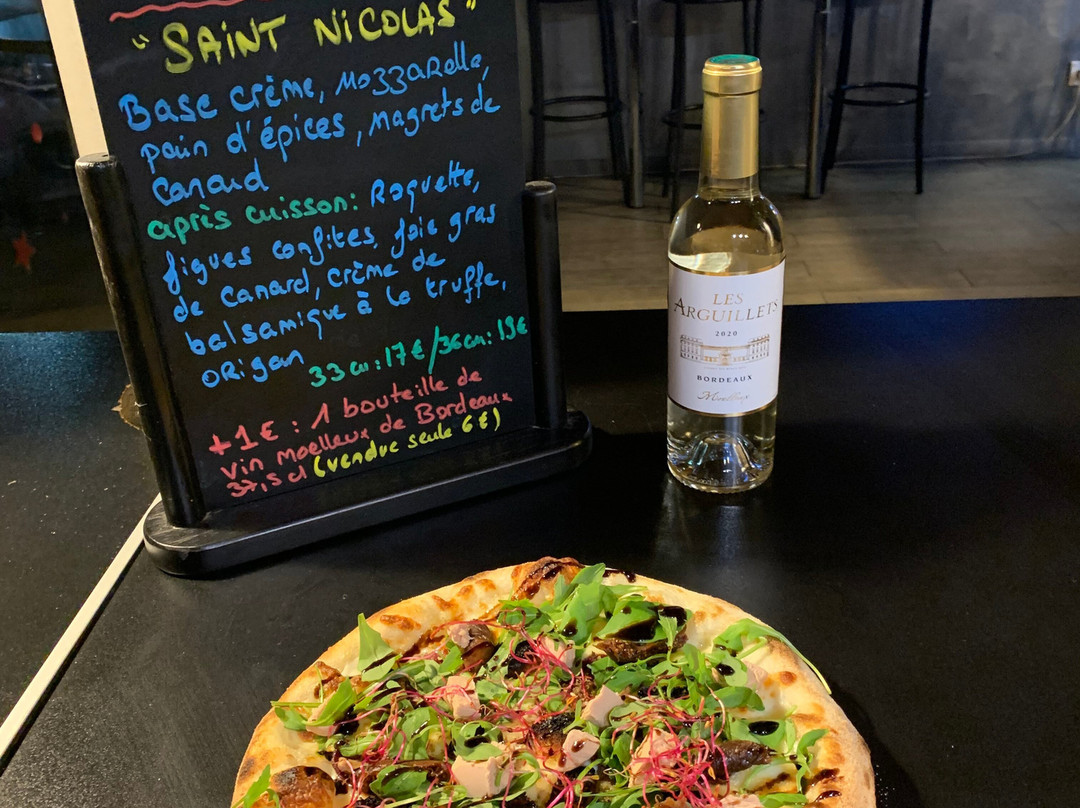 "SAINT NICOLAS"
Base crème, Mozzarella,
pain d'épices, Magrets de
Canard
après cuisson: Roquette,
figues confites, foie gras
de Canard, Crème de
balsamique à la truffe,
ORigan
33 cm: 17€/36cm: 19€
+1€: 1 bouteille de
vin moelleux de Bordeaux
37,5 cl (vendue seule 6€)
LES
ARGUILLETS
2020
BORDEAUX
Moelleux